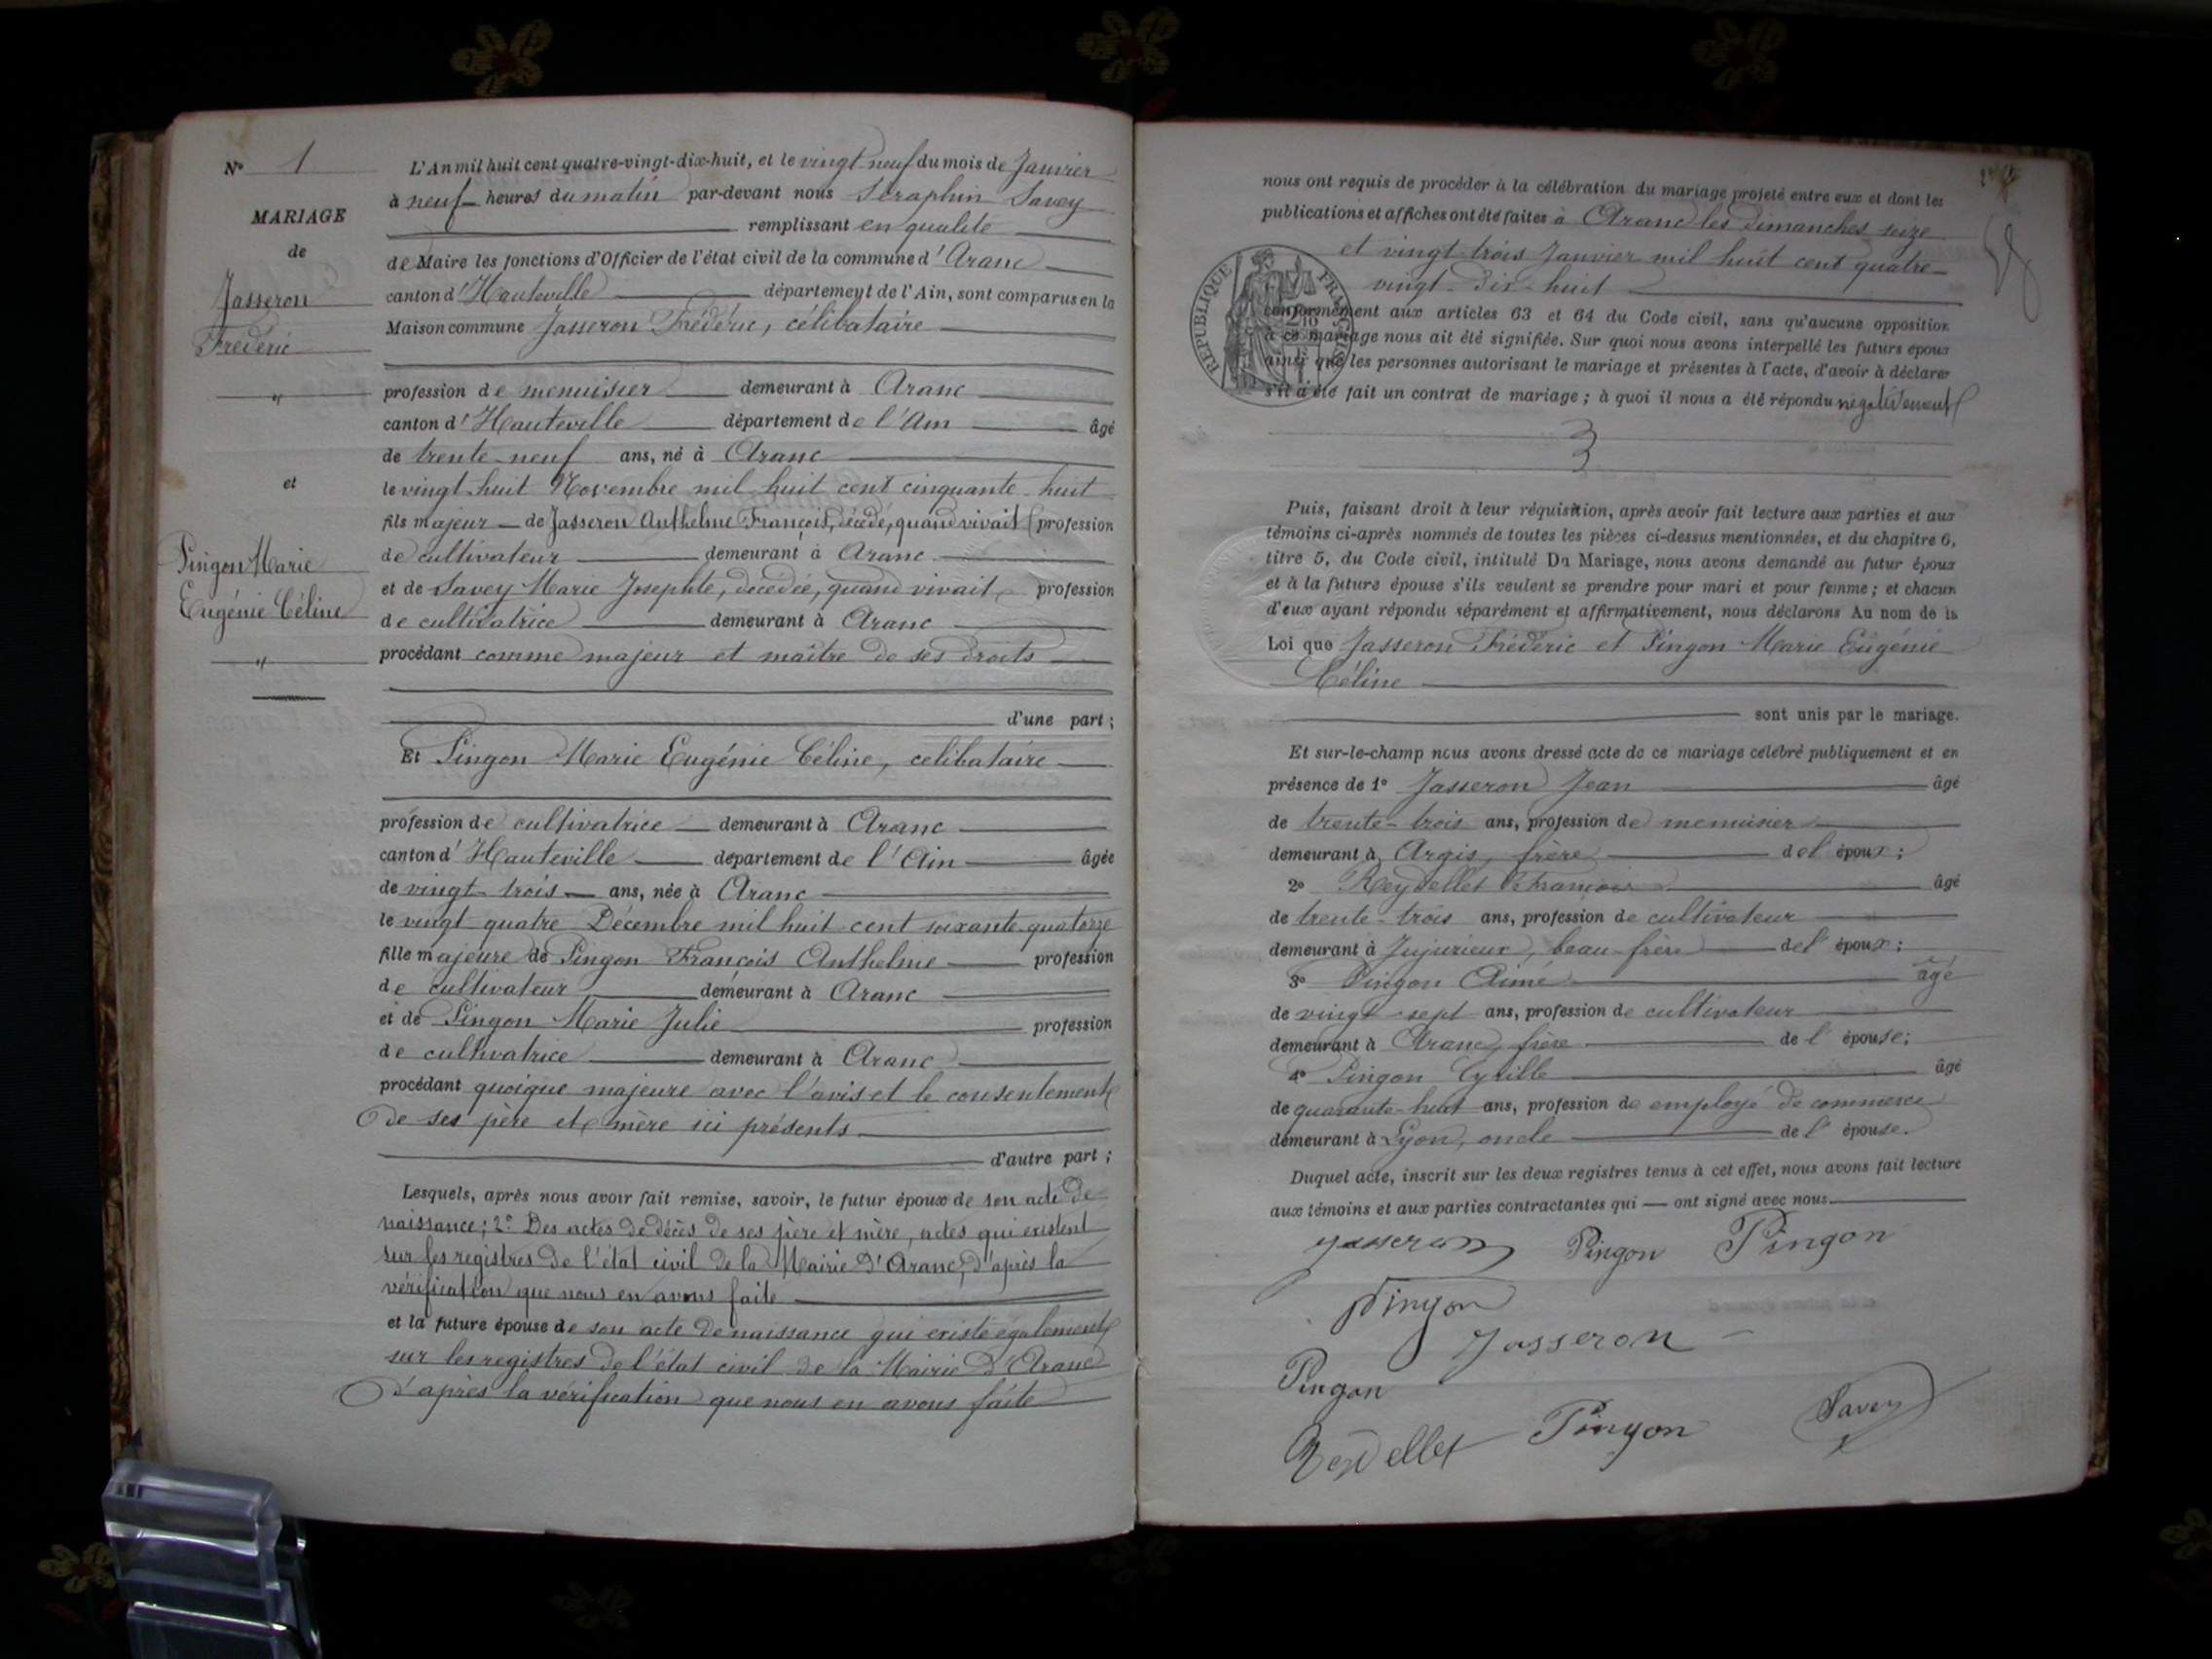 N° 1
MARIAGE
de
Jasseron
Frédéric
"
et
Pingon Marie
Eugénie Céline
"
L'An mil huit cent quatre-vingt-dix-huit, et le vingt-neuf du mois de Janvier
à neuf heures du matin par-devant nous Séraphin Savey
remplissant en qualité
de Maire les fonctions d'Officier de l'état civil de la commune d'Aranc
canton d'Hauteville département de l'Ain, sont comparus en la
Maison commune Jasseron Frédéric, célibataire
profession de menuisier demeurant à Aranc
canton d'Hauteville département de l'Ain âgé
de trente-neuf ans, né à Aranc
le vingt-huit Novembre mil huit cent cinquante-huit
fils majeur de Jasseron Anthelme François, décédé, quand vivait profession
de cultivateur demeurant à Aranc
et de Savey Marie Josephte, décédée, quand vivait profession
de cultivatrice demeurant à Aranc
procédant comme majeur et maître de ses droits
d'une part ;
Et Pingon Marie Eugénie Céline, celibataire
profession de cultivatrice demeurant à Aranc
canton d'Hauteville département de l'Ain âgée
de vingt-trois ans, née à Aranc
le vingt quatre Décembre mil huit cent soixante quatorze
fille majeure de Pingon François Anthelme profession
de cultivateur demeurant à Aranc
et de Pingon Marie Julie profession
de cultivatrice demeurant à Aranc
procédant quoique majeure avec l'avis et le consentement
de ses père et mère ici présents
d'autre part ;
Lesquels, après nous avoir fait remise, savoir, le futur époux de son acte de
naissance ; 2° Des actes de décès de ses père et mère, actes qui existent
sur les registres de l'état civil de la Mairie d'Aranc, d'après la
vérification que nous en avons faite
et la future épouse de son acte de naissance qui existe également
sur les registres de l'état civil de la Mairie d'Aranc
d'après la vérification que nous en avons faite
nous ont requis de procéder à la célébration du mariage projeté entre eux et dont les
publications et affiches ont été faites à Aranc les dimanches seize
et vingt trois Janvier mil huit cent quatre-
vingt-dix-huit
REPUBLIQUE FRANÇAISE
conformément aux articles 63 et 64 du Code civil, sans qu'aucune opposition
à ce mariage nous ait été signifiée. Sur quoi nous avons interpellé les futurs époux
ainsi que les personnes autorisant le mariage et présentes à l'acte, d'avoir à déclarer
s'il a été fait un contrat de mariage ; à quoi il nous a été répondu négativement
Puis, faisant droit à leur réquisition, après avoir fait lecture aux parties et aux
témoins ci-après nommés de toutes les pièces ci-dessus mentionnées, et du chapitre 6,
titre 5, du Code civil, intitulé Du Mariage, nous avons demandé au futur époux
et à la future épouse s'ils veulent se prendre pour mari et pour femme ; et chacun
d'eux ayant répondu séparément et affirmativement, nous déclarons Au nom de la
Loi que Jasseron Frédéric et Pingon Marie Eugénie
Céline
sont unis par le mariage.
Et sur-le-champ nous avons dressé acte de ce mariage célébré publiquement et en
présence de 1° Jasseron Jean âgé
de trente-trois ans, profession de menuisier
demeurant à Argis, frère de l'époux ;
2° Reydellet François âgé
de trente-trois ans, profession de cultivateur
demeurant à Jujurieux, beau-frère de l'époux ;
3° Pingon Aimé âgé
de vingt-sept ans, profession de cultivateur
demeurant à Aranc, frère de l'épouse ;
4° Pingon Cyrille âgé
de quarante-huit ans, profession de employé de commerce
demeurant à Lyon, oncle de l'épouse.
Duquel acte, inscrit sur les deux registres tenus à cet effet, nous avons fait lecture
aux témoins et aux parties contractantes qui ont signé avec nous
Jasseron Pingon Pingon
Pingon
Jasseron
Pingon
Reydellet Pingon Savey